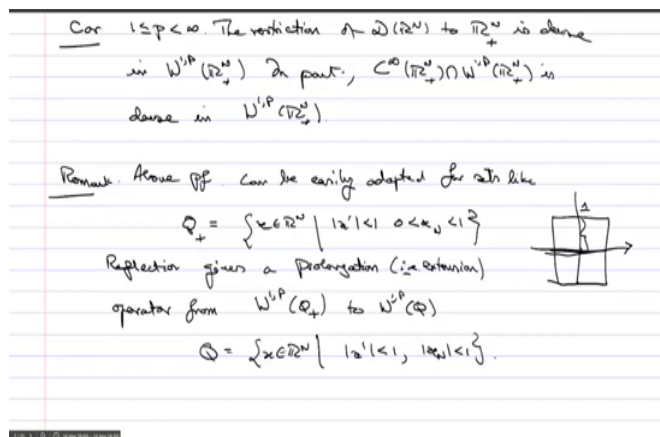 Cor 1≤p<∞. The restriction of 𝒟(ℝᴺ) to ℝ₊ᴺ is dense
in W^{1,p}(ℝ₊ᴺ) In part., C^∞(ℝ₊ᴺ)∩W^{1,p}(ℝ₊ᴺ) is
dense in W^{1,p}(ℝ₊ᴺ).
Remark. Above pf. can be easily adapted for sets like
Q₊ = {x∈ℝᴺ | |x'|<1 0<x_N<1}
1
Reflection gives a prolongation (i.e. extension)
operator from W^{1,p}(Q₊) to W^{1,p}(Q)
Q = {x∈ℝᴺ | |x'|<1, |x_N|<1}.